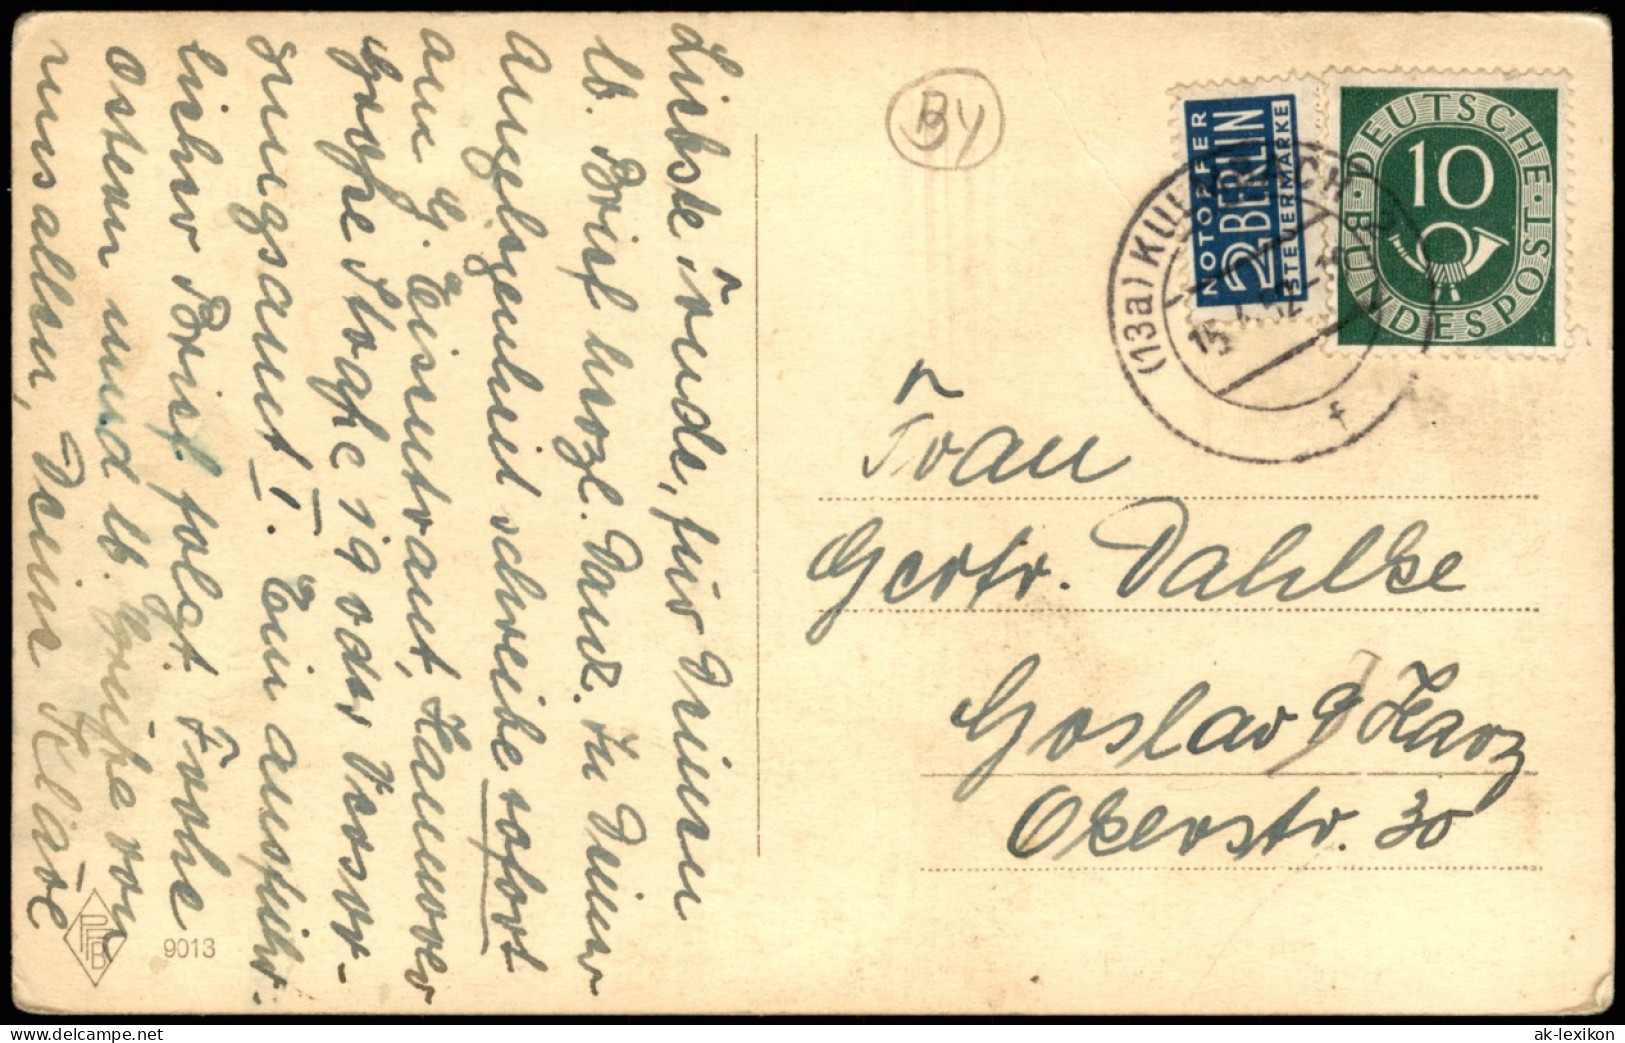 Liebste Trude, für Deinen
lb. Brief herzl. Dank. In Deiner
Angelegenheit schreibe sofort
an G. Eisentraut, Hannover
Große 19 oder Versor-
gungsamt I. Ein ausführ-
licher Brief folgt. Frohe
Ostern und lb. Grüße von
uns allen, Dein Kläre
PFB
9013
BY
NOTOPFER
2 BERLIN
STEUERMARKE
DEUTSCHE BUNDESPOST
10
(13a) KU
15. 4. 52
f
Frau
Gertr. Dahlke
Goslar a/Harz
Okerstr. 30
ak-lexikon.de